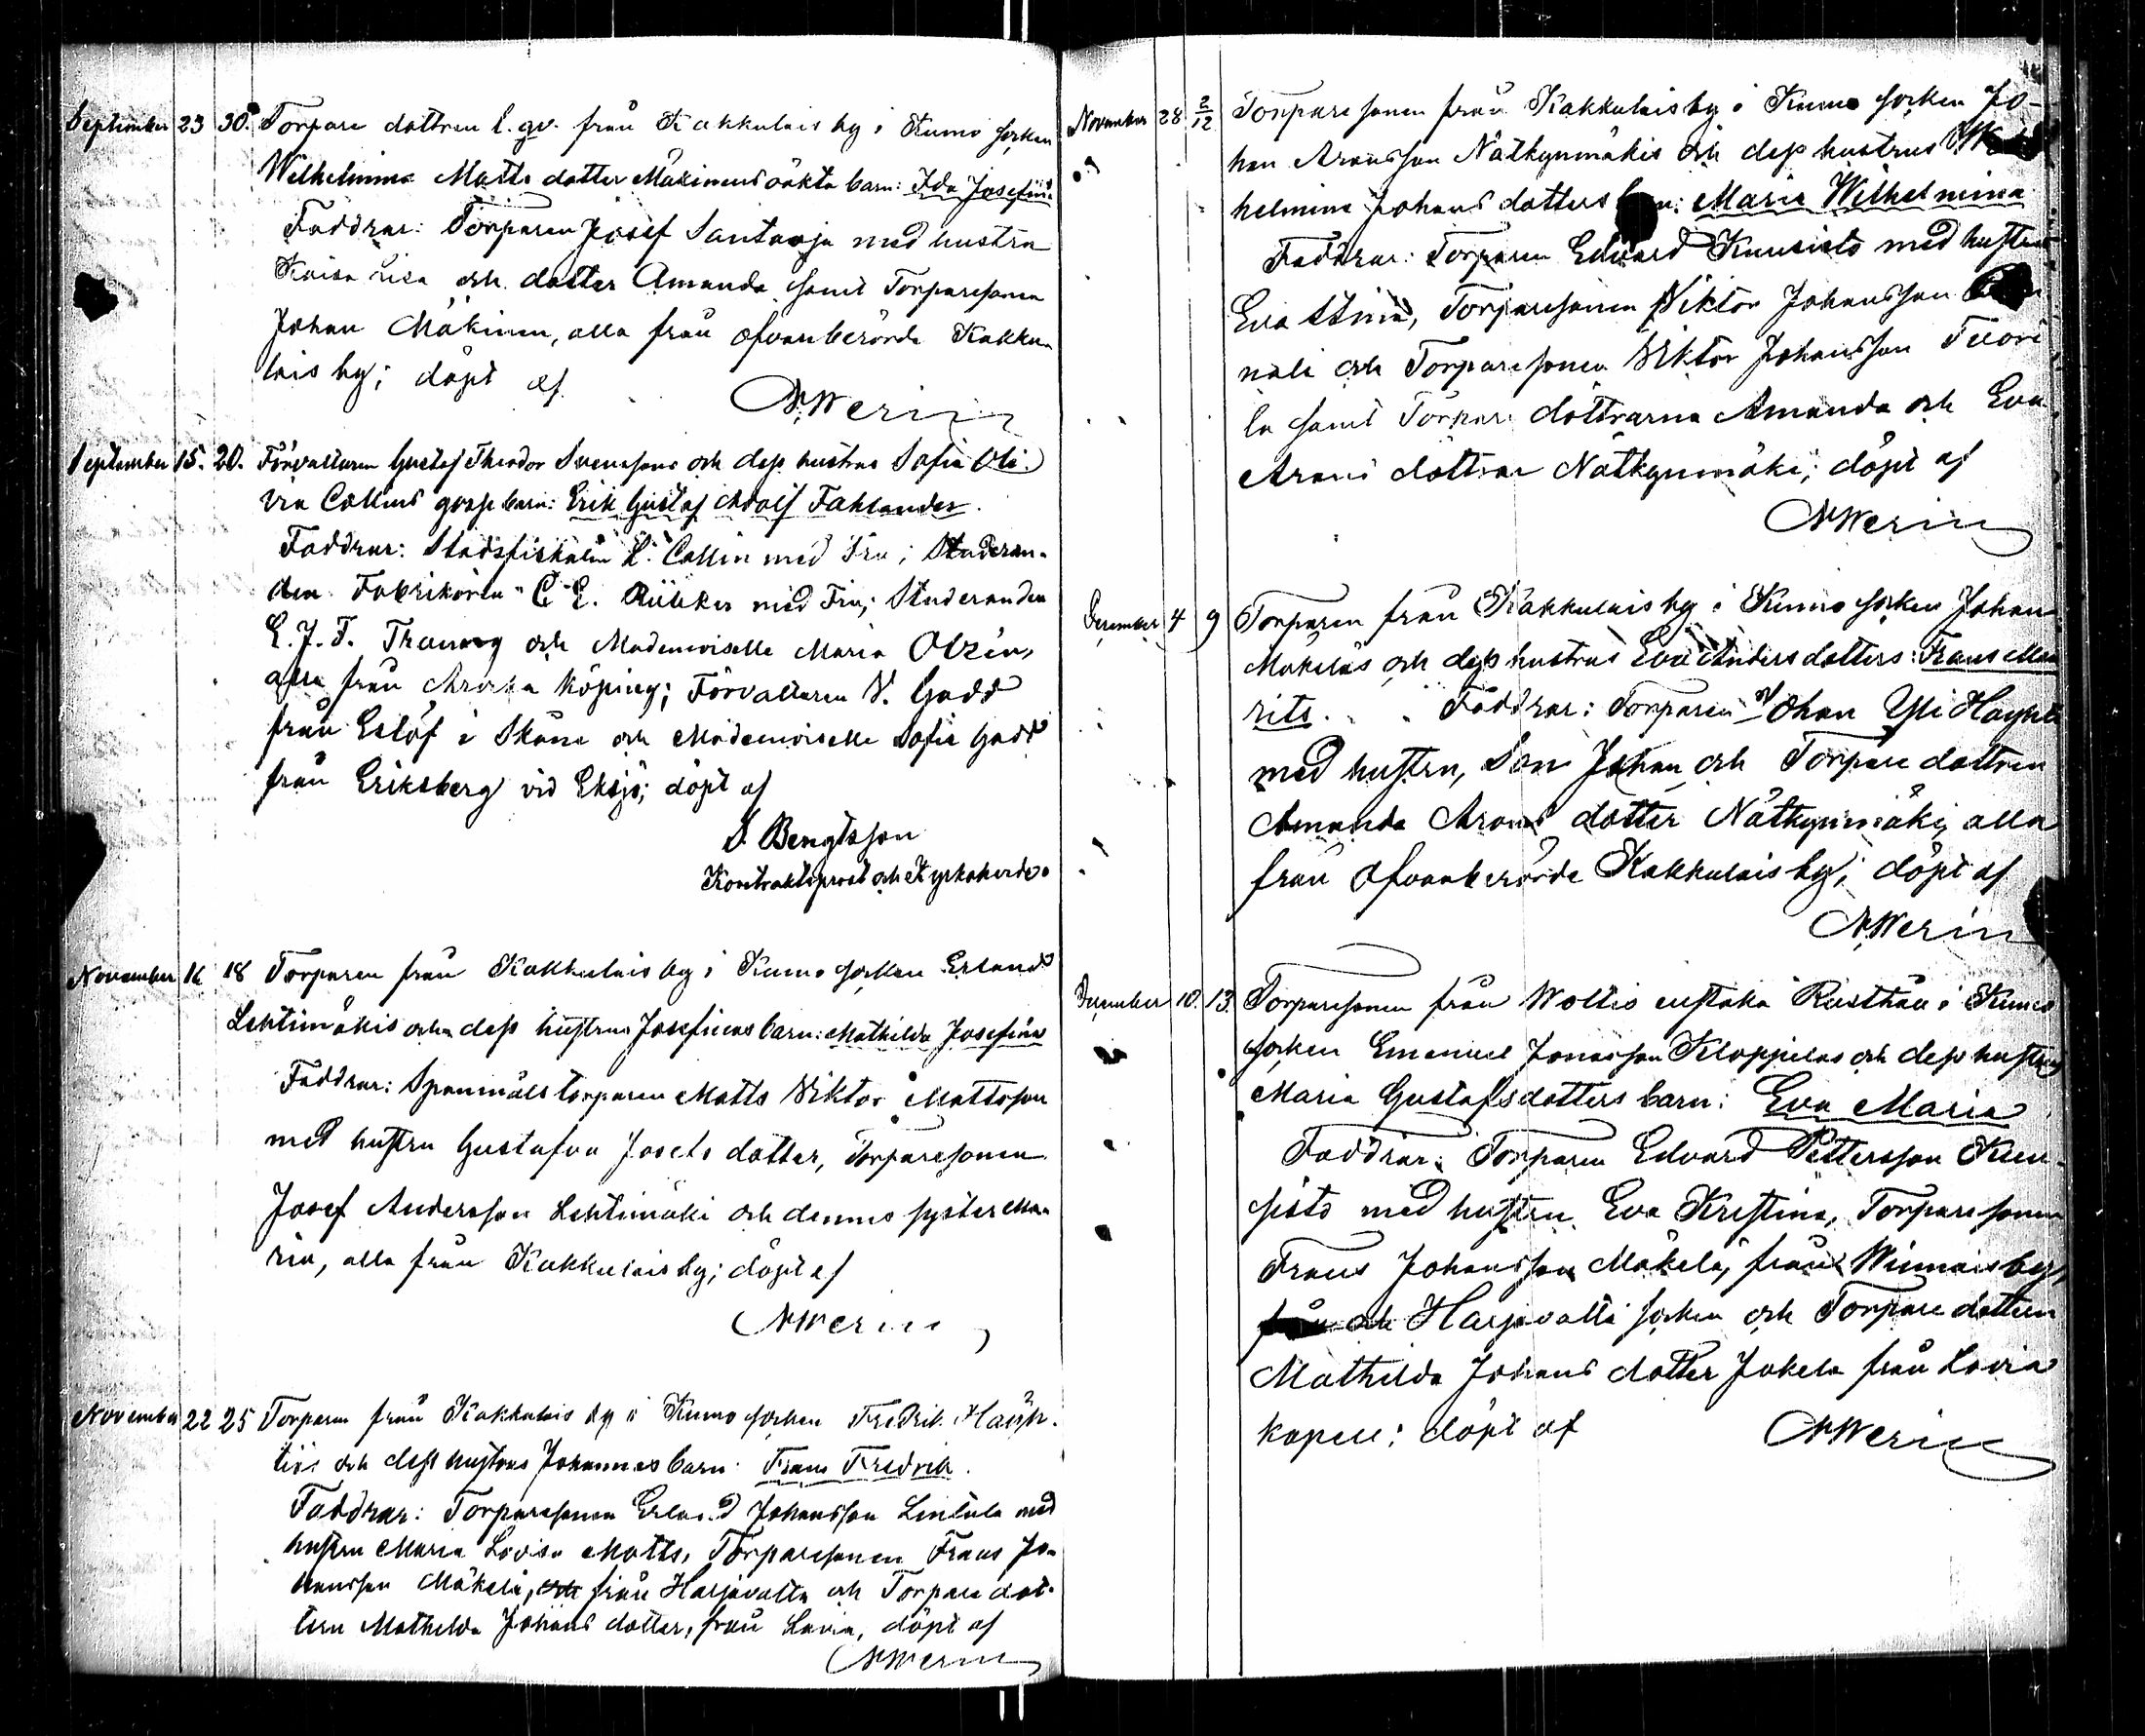 September 23 30. Torpare dottren l. qv. från Kakkulais by i Kumo sorken
Wilhelmina Matts dotter Mäkinens oäkta barn: Ida Josefina
Faddrar: Torparen Josef Santaoja med hustru
Kaisa Lisa och dotter Amanda samt Torparesonen
Johan Mäkinen, alla från ofvanberörde Kakku-
lais by; döpt af
NWerin
September 15. 20. Förvaltaren Gustaf Theodor Svensons och dess hustrus Sofia Oli-
via Collins gossebarn: Erik Gustaf Adolf Fahlander.
Faddrar: Stadsfiskalen L. Collin med Fru; Studeran-
den Fabrikören C. E. med Fru; Studeranden
E. J. F. och Mademoiselle Maria Olzén,
alla från köping; Förvaltaren N. Gadd
från Eslöf i Skåne och Mademoiselle Sofie Gadd
från Eriksberg vid Eksjö; döpt af
S. Bengtsson
Kontraktsprost och Kyrkoherde.
November 16 18 Torparen från Kakkulais by i Kumo sorken Erland
Lehtimäkis och dess hustrus Josefinas barn: Mathilda Josefina
Faddrar: Spanmåls torparen Matts Viktor Mattsson
med hustru Gustafva Josefs dotter, Torparesonen
Josef Andersson Lehtimäki och dennes syster Ma-
ria, alla från Kakkulais by; döpt af
NWerin
November 22 25 Torparen från Kakkulais by i Kumo sorken Fredrik Häyh-
tiös och dess hustrus Johannas barn: Frans Fredrik.
Faddrar: Torparesonen Erland Johansson Lintula med
hustru Maria Lovisa Matts, Torparesonen Frans Jo-
hansson Mäkelä, från Harjavalta och Torpare dot-
tern Mathilda Johans dotter, från Lavia, döpt af
NWerin
November 28 2/12 Torpare sonen från Kakkulais by i Kumo sorken Jo-
han Aronsson Nätkynmäkis och dess hustrus
helmina Johans dotters barn: Maria Wilhelmina
Faddrar: Torparen Edvard Kuusisto med hustru
Eva Stina, Torparesonen Viktor Johansson
nala och Torparesonen Viktor Johansson Tuori
la samt Torpare döttrarna Amanda och Eva
Arons döttrar Nätkynmäki; döpt af
NWerin
December 4 9 Torparen från Kakkulais by i Kumo sorken Johan
Mäkeläs och dess hustrus Eva Anders dotters: Frans Mau
rits. Faddrar: Torparen Johan Yli Häyhtiö
med hustru, Son Johan och Torpare dottren
Amanda Arons dotter Nätkynmäki, alla
från ofvanberörde Kakkulais by; döpt af
NWerin
December 10. 13. Torparesonen från Woltis enstaka Rusthåll i Kumo
sorken Emanuel Jonasson Kloppilas och dess hustrus
Maria Gustafs dotters barn: Eva Maria
Faddrar: Torparen Edvard Pettersson Kuu-
sisto med hustru Eva Kristina, Torpare sonen
Frans Johansson Mäkelä, från Winnais by,
och Harjavalta sorken och Torpare dottern
Mathilda Johans dotter Jokela från Lavia
kapell; döpt af NWerin